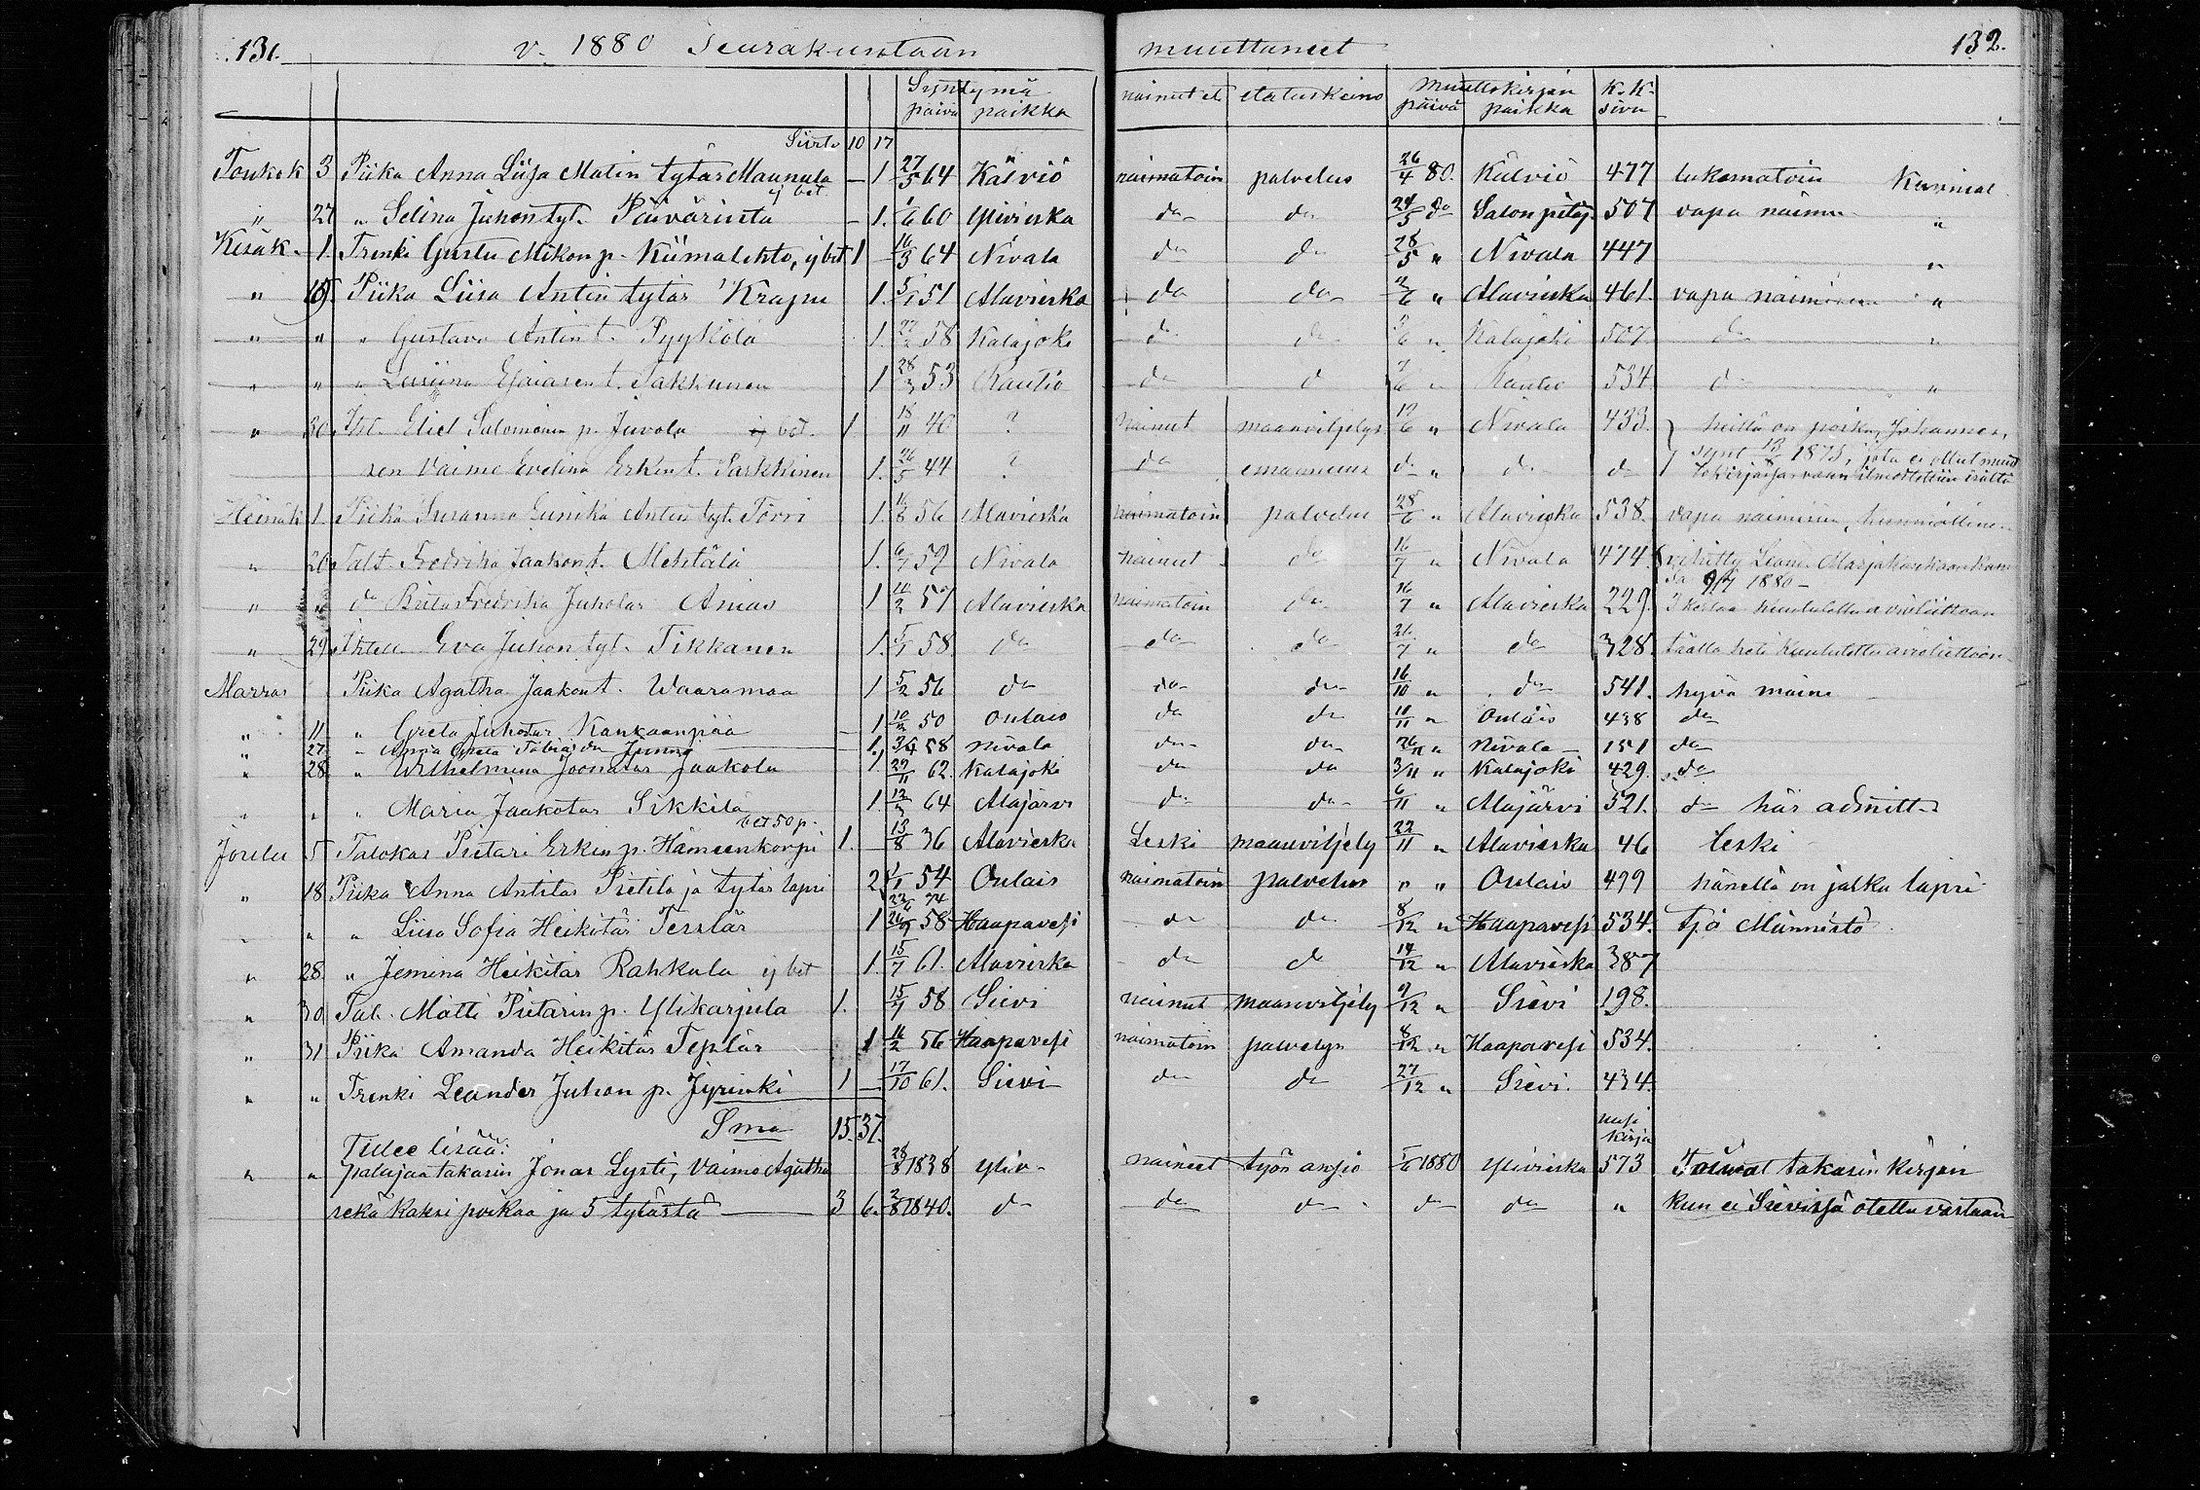 131. v. 1880 Seurakuntaan muuttaneet 132.
Syntymä Muuttokirjan K.K.
päivä paikka nainut et. elatuskeino päivä paikka sivu
Siirto 10 17
Toukok 3 Piika Anna Liisa Matin tytär Maunula ej bet — 1 27/5 64 Kälviö naimatoin palvelus 26/4 80. Kälviö 477 lukematoin
" 27 " Selina Juhon tyt. Päivärinta — 1. 1/6 60 Ylivieska do do 24/5 do Salon pitäj. 507 vapa naimn "
Kesäk. 1. Trenki Gustu Mikon p. Kiimalehto, ej bet 1 — 16/3 64 Nivala do do 28/5 " Nivala 447 "
" 19. Piika Liisa Antin tytär Krapu 1. 5/1 51 Alavieska do do 2/6 " Alavieska 461. vapa naimisen "
" " " Gustava Antin t. Pyykölä 1. 22/2 58 Kalajoki do do 5/6 " Kalajoki 507. do "
" " " Esaiasen t. Takkunen 1 28/3 53 Rautio do d 7/6 " Rautio 534 d "
" 30. Itst. Eliel Salomonin p. Juvola ej bet. 1 18/11 40 ? nainut maanviljelys 17/6 " Nivala 433. heillä on poika, Johannes,
sen vaimo Evelina Erkin t. Parkkinen 1. 26/5 44 ? do emännyys do " do do synt 13/8 1875, jota ei ollut muut
tokirjassa vaan ilmoitettiin isältä
Heinäk 1. Piika Susanna Eunika Antin tyt. Törri 1. 16/8 56 Alavieska naimatoin palvelus 28/6 " Alavieska 538. vapa naimisen, kunniallinen
" 20. Talt. Fredrika Jaakon t. Mehtälä 1. 6/7 59 Nivala nainut do 16/7 " Nivala 474. vihitty
9/7 1880 —
" " do Brita Fredrika Juhotar Anias 1 10/2 57 Alavieska naimatoin do 16/7 " Alavieska 229. 3 kertaa kuulutettu avioliittoon
" 29. Itsell. Eva Juhon tyt. Tikkanen 1. 5/1 58. do do do 21/7 " do 328. täällä kuulutettu avioliittoon
Marras Piika Agatha Jaakon t. Waaramaa 1 5/2 56 do do do 16/10 " do 541. hyvä maine
" 11 " Greta Juhotar Kankaanpää — 1 10/2 50 Oulais do do 10/11 " Oulais 438 do
" 27. " Anna Greta Tobiasdr Junno — 1. 3/4 58 Nivala do do 26/11 " Nivala — 151 do
" 28 " Wilhelmina Joonatar Jaakola 1. 27/11 62. Kalajoki do do 3/11 " Kalajoki 429. do
" " " Maria Jaakotar Sikkilä bet 50 p. 1. 12/2 64 Alajärvi do do 6/11 " Alajärvi 521. do här admitt.
Joulu 5 Talokas Pietari Erkin p. Hämeenkorpi 1. — 13/8 36 Alavieska Leski maanviljely 22/11 " Alavieska 46 leski
" 18. Piika Anna Antitar Pietilä ja tytär lapsi 2. 1/1 54 Oulais naimatoin palvelus " " Oulais 499 hänellä on jalka lapsi
23/6 74
" " " Liisa Sofia Heikitär Tesslär 1 26/9 58 Haapavesi do do 8/12 " Haapavesi 534. tjo Männistö
" 28. " Jemina Heikitär Rahkula ej bet 1. 15/7 61. Alavieska do do 14/12 " Alavieska 387
" 30 Tal. Matti Pietarin p. Ylikarjula 1. 15/7 58 Sievi nainut maanviljely 9/12 " Sievi 198.
" 31 Piika Amanda Heikitär Teslär 1 16/2 56 Haapavesi naimatoin palvelys 8/12 " Haapavesi 534.
" " Trenki Leander Juhon p. Jyrinki 1 — 17/10 61. Sievi do do 27/12 " Sievi. 434.
Sma 15. 37. uusi
kirja
Tulee lisää:
" " palajaa takasin Jonas Lysti, vaimo Agatha 28/8 1838 Yliv. naineet työn ansio 1/6 1880 Ylivieska 573 Toivat takasin kirjan
sekä kaksi poikaa ja 5 tytärtä — 3 6. 2/8 1840. do do do do do " kun ei Sievissä otettu vastaan